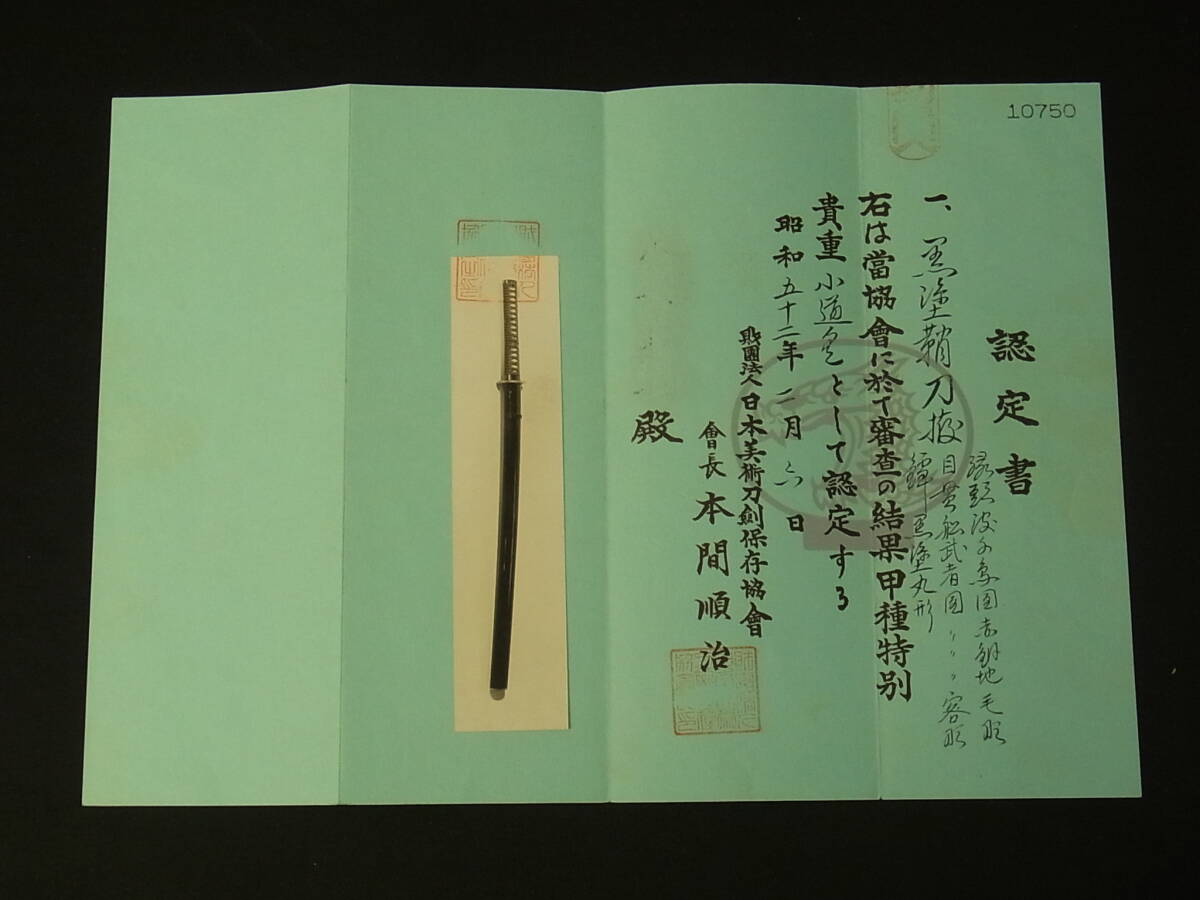 10750
認定書
一、黒塗鞘刀拵
縁頭波千鳥図赤銅地毛彫
目貫船武者図〃〃〃容彫
鐔黒塗丸形
右は當協會に於て審査の結果甲種特別
貴重小道具として認定する
昭和五十二年二月六日
財團法人日本美術刀劍保存協會
會長 本間順治
殿